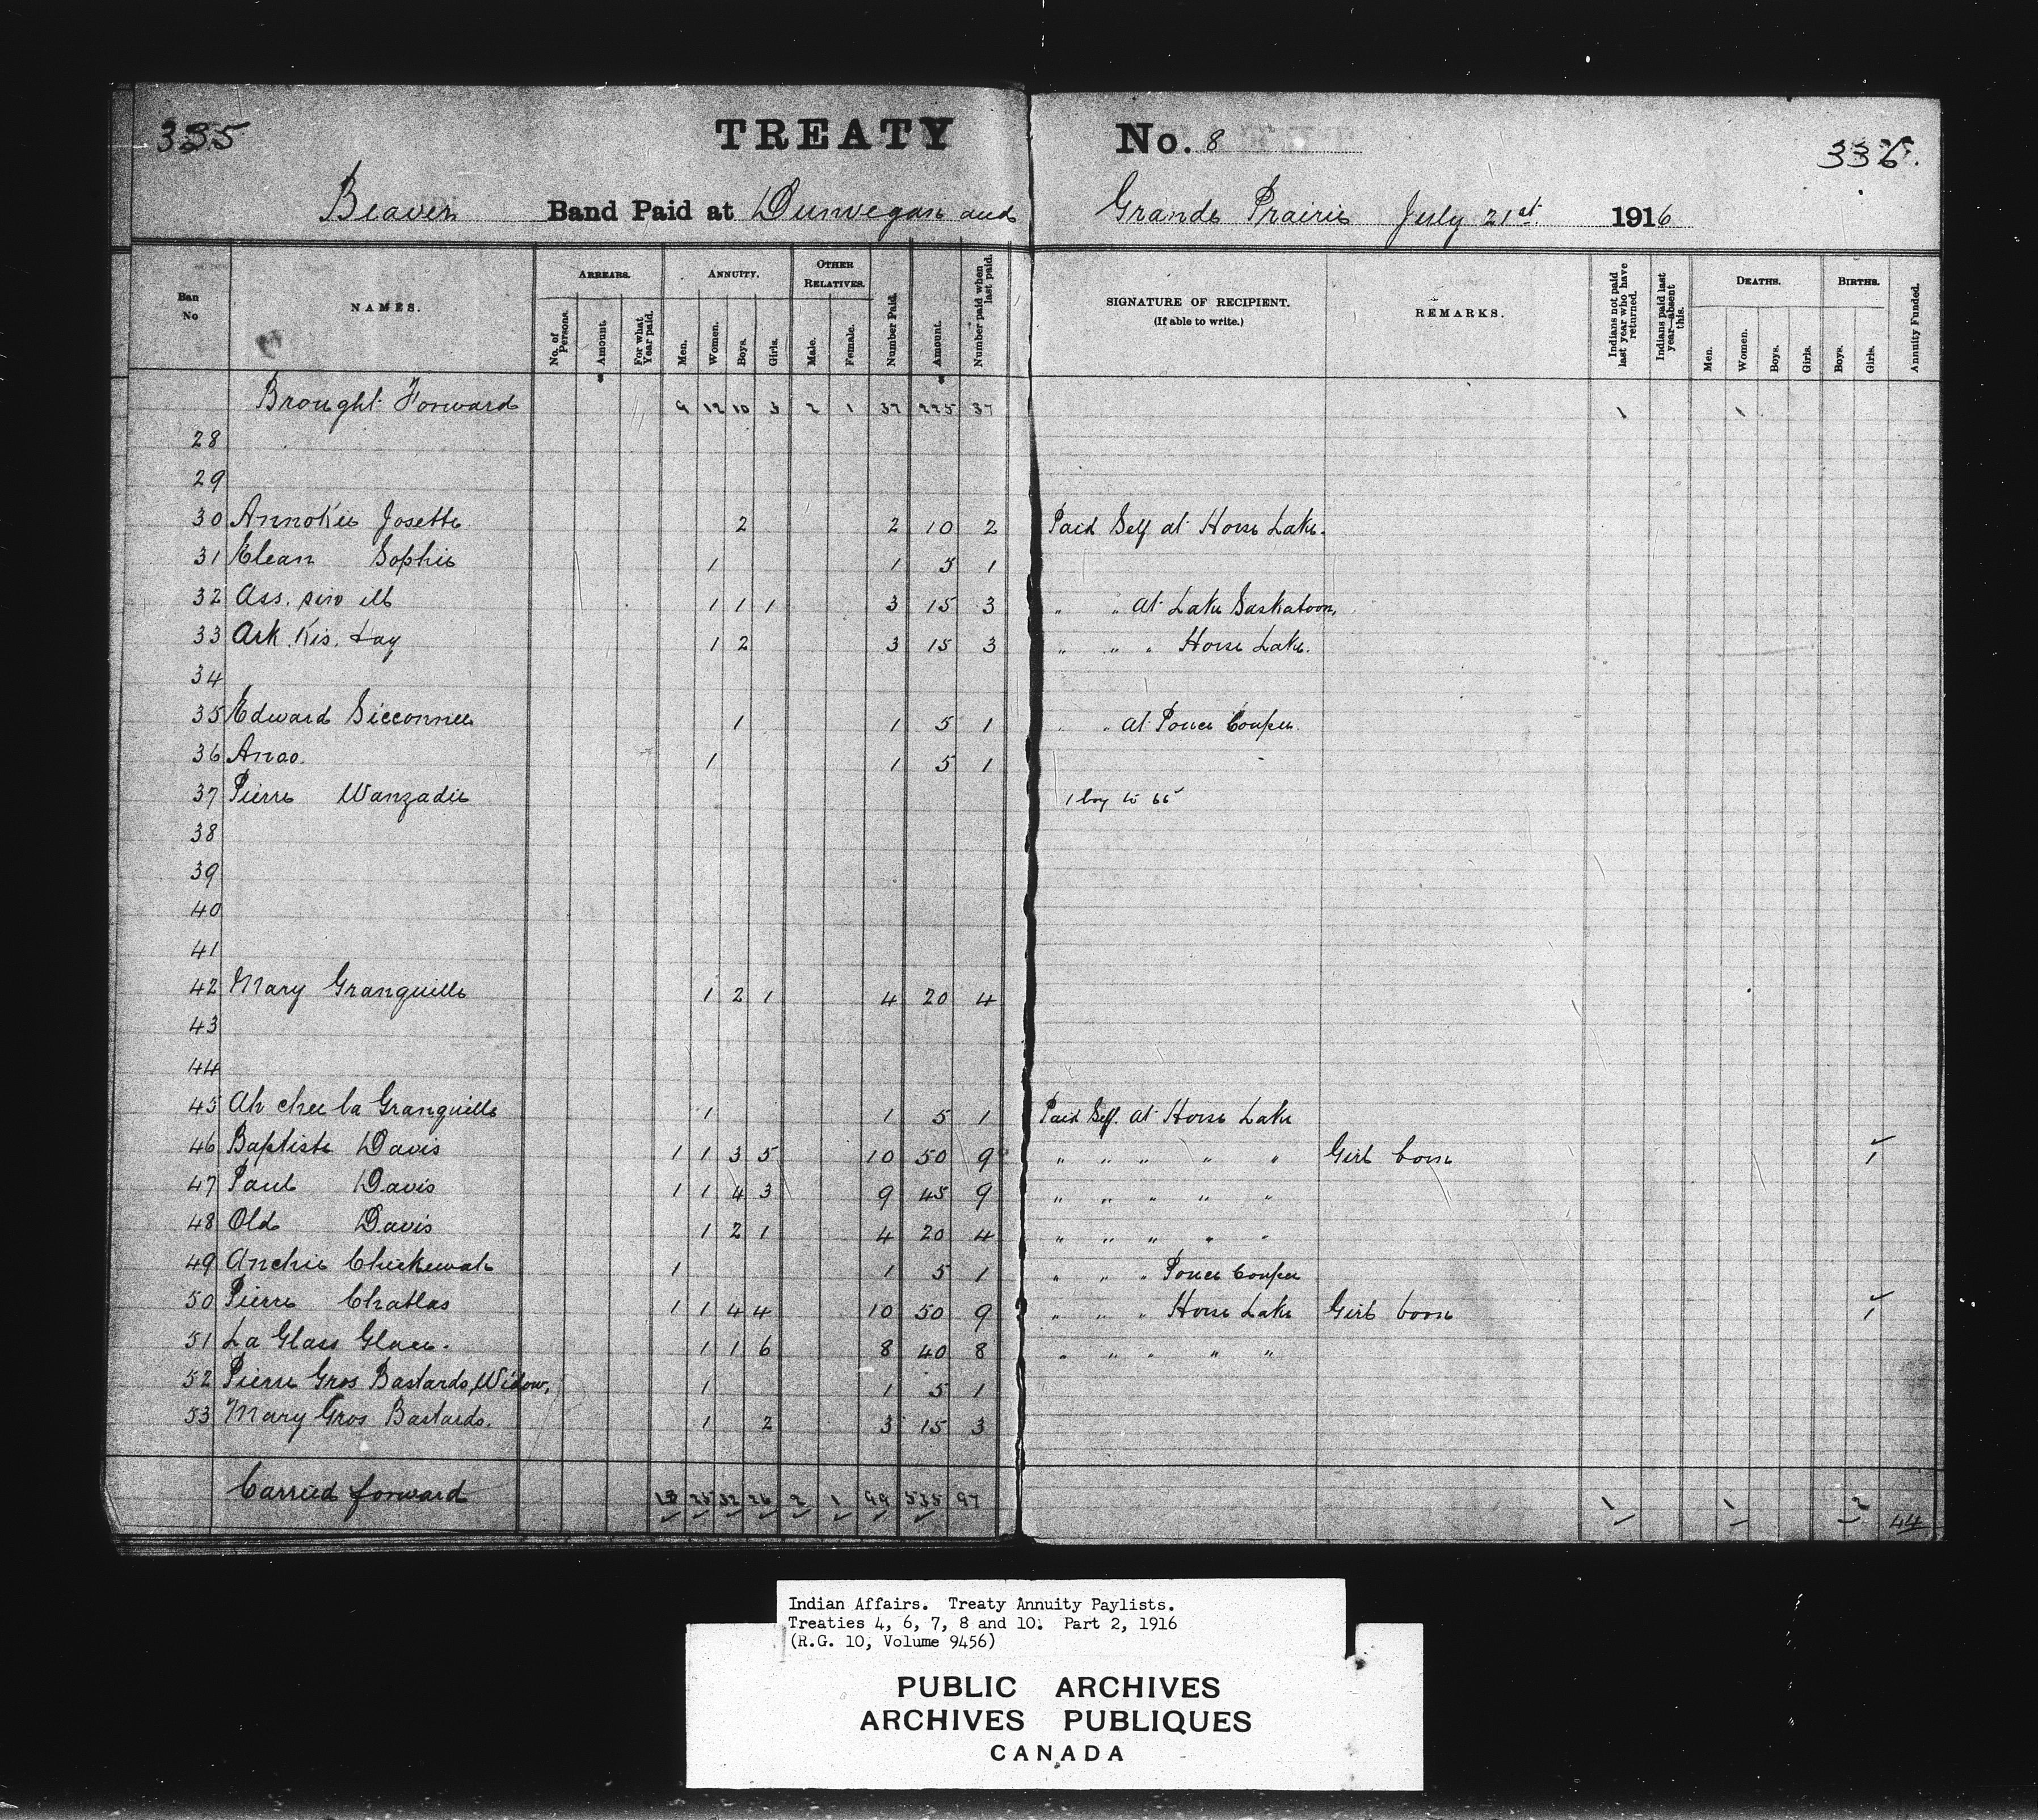 335 TREATY No. 8 336.
Beaver Band Paid at Dunvegan and Grande Prairie July 21st 1916
Ban No NAMES. ARREARS. No. of Persons. Amount. For what Year paid. ANNUITY. Men. Women. Boys. Girls. OTHER RELATIVES. Male. Female. Number Paid. Amount. Number paid when last paid. SIGNATURE OF RECIPIENT. (If able to write.) REMARKS. Indians not paid last year who have returned. Indians paid last year—absent this. DEATHS. Men. Women. Boys. Girls. BIRTHS. Boys. Girls. Annuity Funded.
Brought Forward 9 12 10 3 2 1 37 225 37 1 1
28
29
30 Annokie Josette 2 2 10 2 Paid Self at Horse Lake.
31 Elean Sophie 1 1 5 1
32 Ass. sin 1 1 1 3 15 3 " " at Lake Saskatoon,
33 Ark. Kis. tay 1 2 3 15 3 " " " Horse Lake.
34
35 Edward Sicconnee 1 1 5 1 " " at Pouce Coupee
36 Anao. 1 1 5 1
37 Pierre Wanzadie 1 boy to 66
38
39
40
41
42 Mary Granquille 1 2 1 4 20 4
43
44
45 Ah chee la Granquille 1 1 5 1 Paid Self. at Horse Lake
46 Baptiste Davis 1 1 3 5 10 50 9 " " " " " Girl born 1
47 Paul Davis 1 1 4 3 9 45 9 " " " " "
48 Old Davis 1 2 1 4 20 4 " " " " "
49 Archie Chickewate 1 1 5 1 " " " Pouce Coupee
50 Pierre Chatlas 1 1 4 4 10 50 9 " " " Horse Lake Girl born 1
51 La Glass Glace. 1 1 6 8 40 8 " " " " "
52 Pierre Gros Bastards, Widow, 1 1 5 1
53 Mary Gros Bastards. 1 2 3 15 3
Carried forward 13 25 32 26 2 1 99 535 97 1 1 2 44
Indian Affairs. Treaty Annuity Paylists.
Treaties 4, 6, 7, 8 and 10. Part 2, 1916
(R.G. 10, Volume 9456)
PUBLIC ARCHIVES
ARCHIVES PUBLIQUES
CANADA